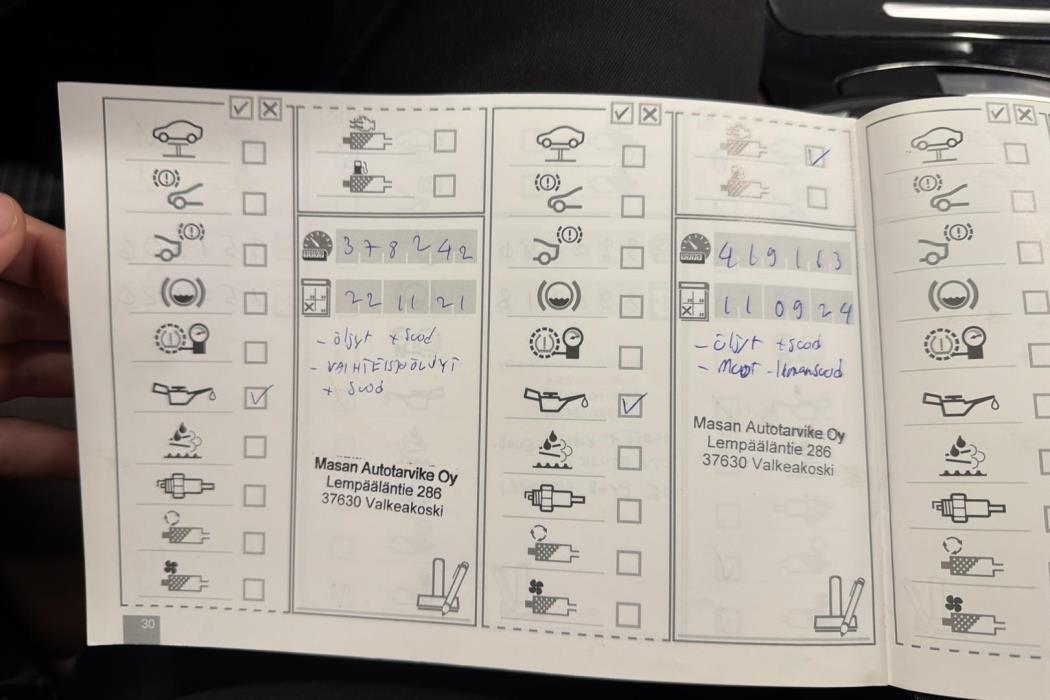 378242
22 11 21
- öljyt + suod
- VAIHTEISTOÖLJYT
+ suod
Masan Autotarvike Oy
Lempääläntie 286
37630 Valkeakoski
30
469163
11 09 24
- öljyt + suod
- Moot -ilmansuod
Masan Autotarvike Oy
Lempääläntie 286
37630 Valkeakoski